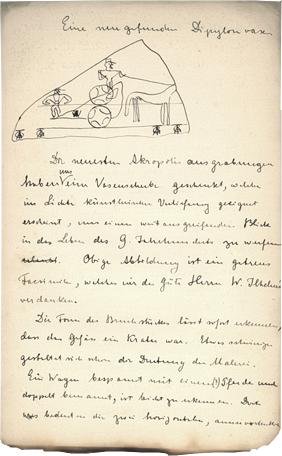 Eine neu gefundene Dipylon vase
Die neuesten Akropolis ausgrabungen
haben uns eine Vasenscherbe geschenkt, welche
im Lichte künstlerischer Vertiefung geeignet
erscheint, uns einen weit ausgreifenden Blick
in das Leben des G. Jahrhunderts zu werfen
Obige Abbildung ist ein getreues
Facsimile, welches wir der Güte Herrn W.
verdanken.
Die Form des Bruchstückes lässt sofort erkennen,
dass das Gefäss ein Krater war. Etwas schwieriger
gestaltet sich schon die Deutung der Malerei.
Ein Wagen bespannt mit einem (!) Pferde und
doppelt bemannt, ist leicht zu erkennen. Doch
was bedeuten die zwei horizontalen,